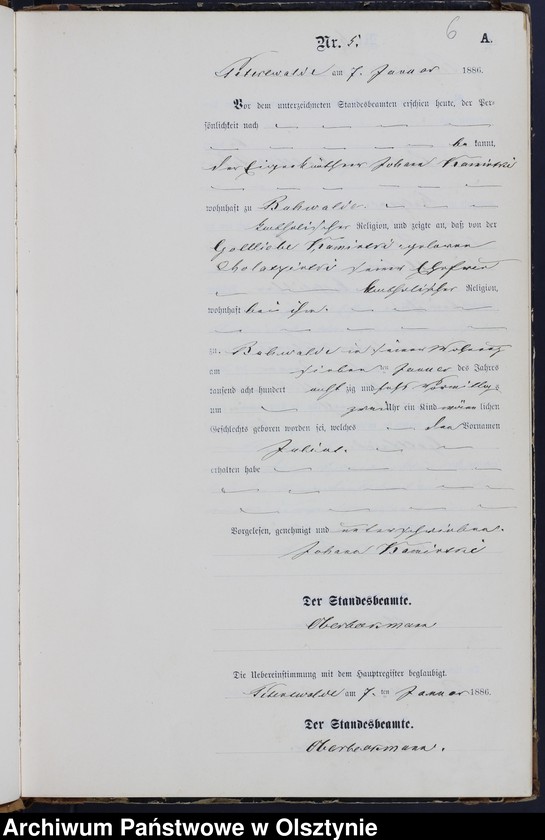 6
Nr. 5. A.
Peterswalde am 7. Januar 1886.
Vor dem unterzeichneten Standesbeamten erschien heute, der Per-
sönlichkeit nach
be kannt,
der Eigenkäthner Johann Kaminski
wohnhaft zu
katholischer Religion, und zeigte an, daß von der
Gottliebe Kaminski geborenen
seiner Ehefrau
katholischer Religion,
wohnhaft bei ihm.
zu in seiner Wohnung
am sieben ten Januar des Jahres
tausend acht hundert acht zig und sechs Vormittags
um zwei Uhr ein Kind männ lichen
Geschlechts geboren worden sei, welches den Vornamen
erhalten habe
Vorgelesen, genehmigt und unterschrieben.
Johann Kaminski
Der Standesbeamte.
Die Uebereinstimmung mit dem Hauptregister beglaubigt.
Peterswalde am 7. ten Januar 1886.
Der Standesbeamte.
Archiwum Państwowe w Olsztynie